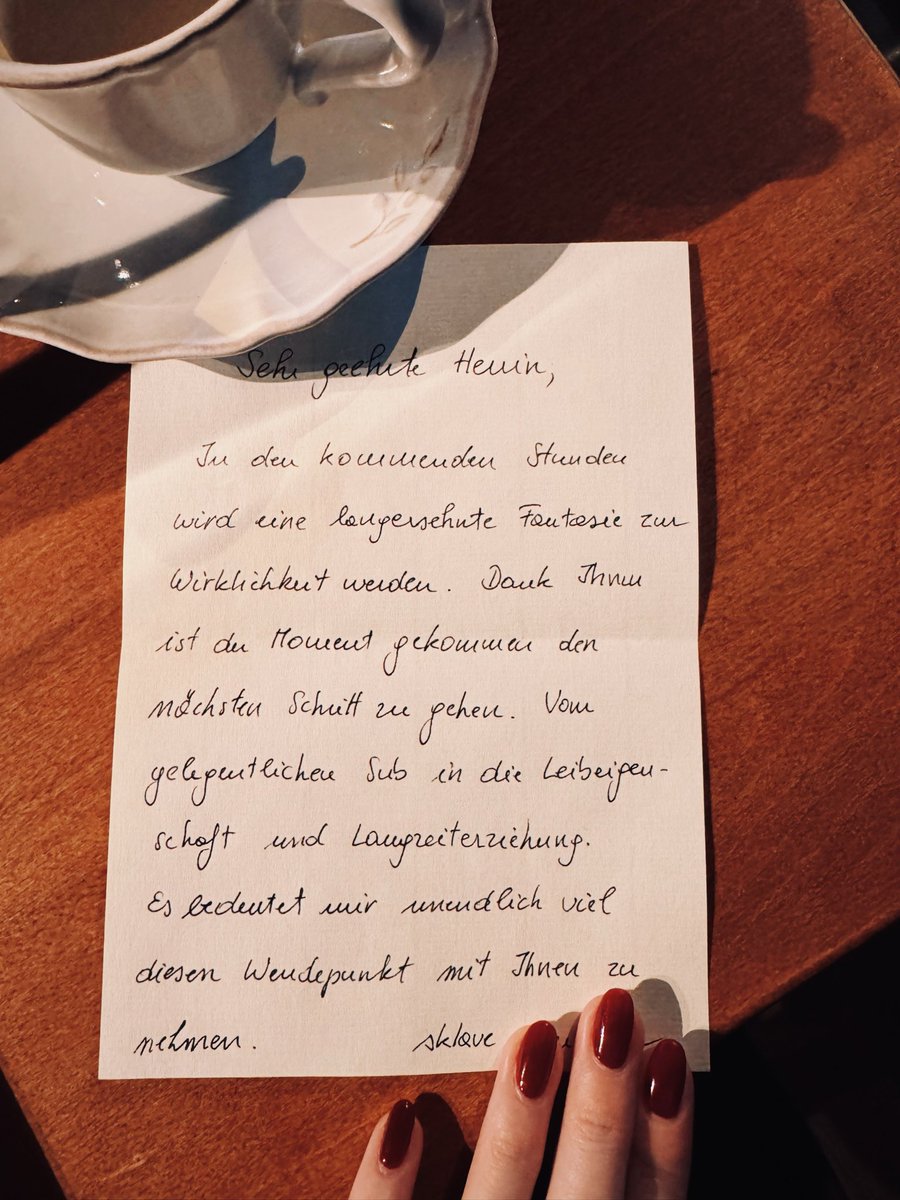 Sehr geehrte Herrin,
In den kommenden Stunden
wird eine langersehnte Fantasie zur
Wirklichkeit werden. Dank Ihnen
ist der Moment gekommen den
nächsten Schritt zu gehen. Vom
gelegentlichen Sub in die Leibeigen-
schaft und Langzeiterziehung.
Es bedeutet mir unendlich viel
diesen Wendepunkt mit Ihnen zu
nehmen. sklave